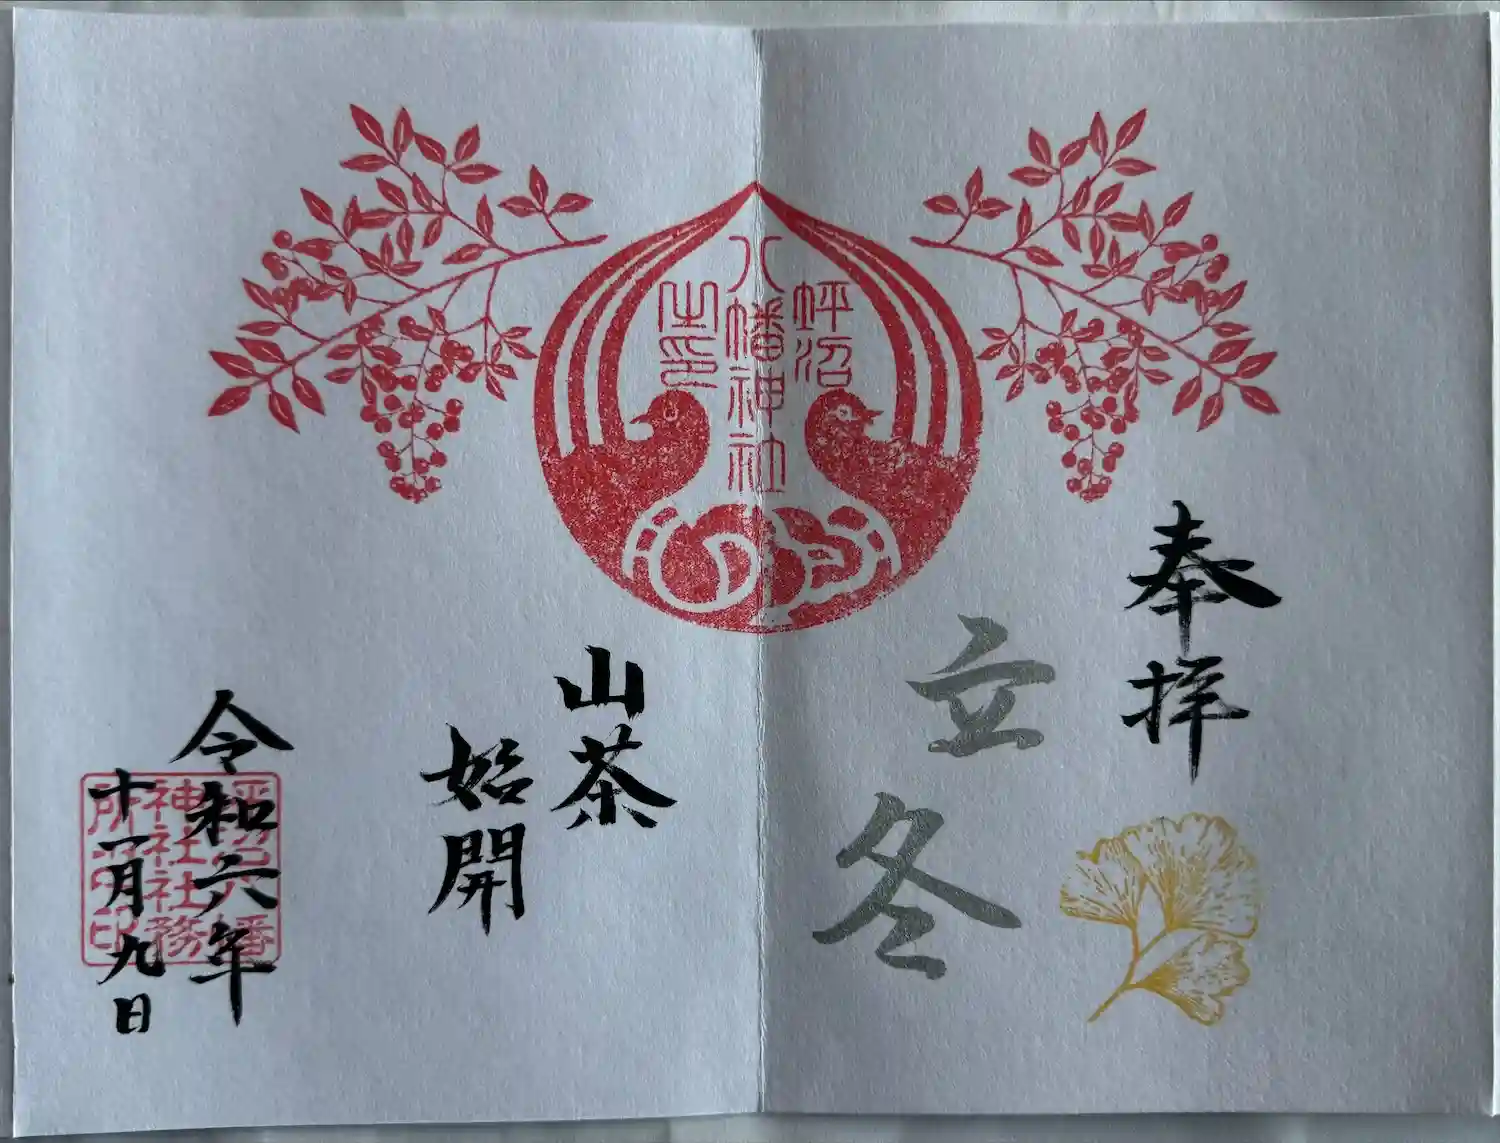 奉拝
立冬
坪沼
八幡神社
之印
山茶
始開
令和六年
十一月九日
坪沼八幡
神社社務
所之印